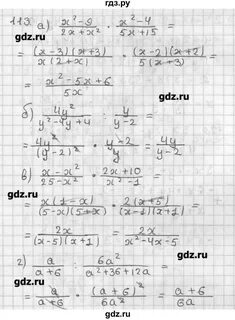 gdz.ru
113. а) x²-9/2x+x² · x²-4/5x+15 =
= (x-3)(x+3)/x(2+x) · (x-2)(x+2)/5(x+3) =
= x²-5x+6/5x
б) 4y²/y²-4y+4 : y/y-2 =
= 4y²/(y-2)² · y-2/y = 4y/y-2
в) x-x²/25-x² · 2x+10/x²-1 =
= x(1-x)/(5-x)(5+x) · 2(x+5)/(x-1)(x+1) =
= 2x/(x-5)(x+1) = 2x/x²-4x-5
г) a/a+6 : 6a²/a²+36+12a =
= a/a+6 · (a+6)²/6a² = a+6/6a
gdz.ru